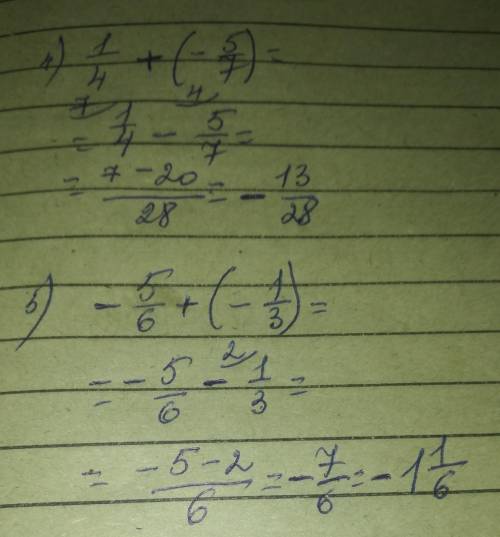 4) 1/4 + (- 5/7) =
= ⁷⁾1/4 - ⁴⁾5/7 =
= 7 - 20/28 = - 13/28
5) - 5/6 + (- 1/3) =
= - 5/6 - ²⁾1/3 =
= -5-2/6 = - 7/6 = - 1 1/6